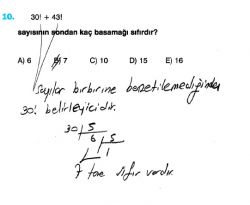 10. 30! + 43!
sayısının sondan kaç basamağı sıfırdır?
A) 6 B) 7 C) 10 D) 15 E) 16
Sayılar birbirine benzetilemediğinden
30! belirleyicidir.
30 5
6 5
1
7 tane sıfır vardır.